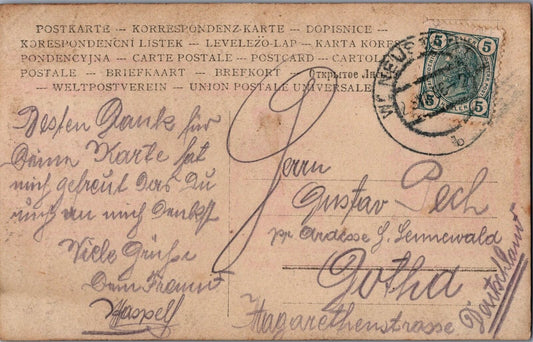 POSTKARTE — KORRESPONDENZ-KARTE — DOPISNICE —
KORESPONDENČNI LISTEK — LEVELEZŐ-LAP — KARTA KORES
PONDENCYJNA — CARTE POSTALE — POSTCARD — CARTOL
POSTALE — BRIEFKAART — BREFKORT — Открытое
— WELTPOSTVEREIN — UNION POSTALE UNIVERSALE
5 5
5 5
WR. NEUST
b
Besten Dank für
Deine Karte hat
mich gefreut das Du
auch an mich denkst
Viele Grüße
Dein Freund
Haspell
Herrn
Gustav Pech
pr Adresse H. Sennewald
Gotha
Hagarethenstrasse
Deutschland